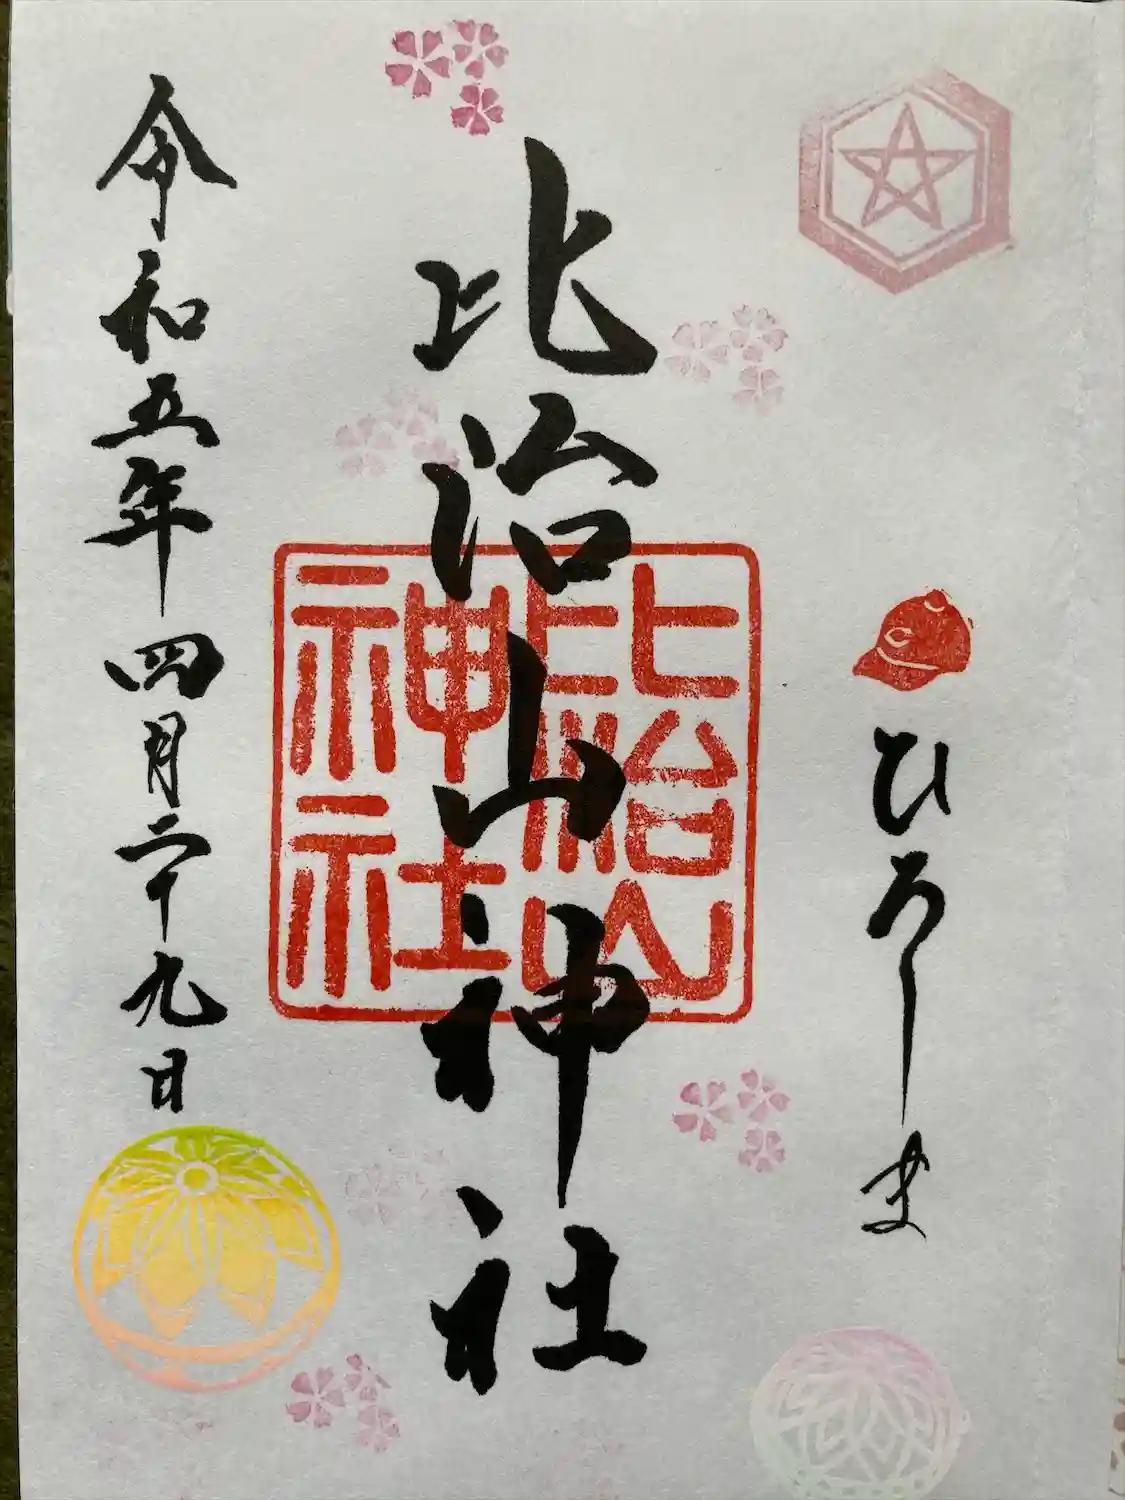 ひろしま
比治山神社
比治山神社
令和五年四月二十九日